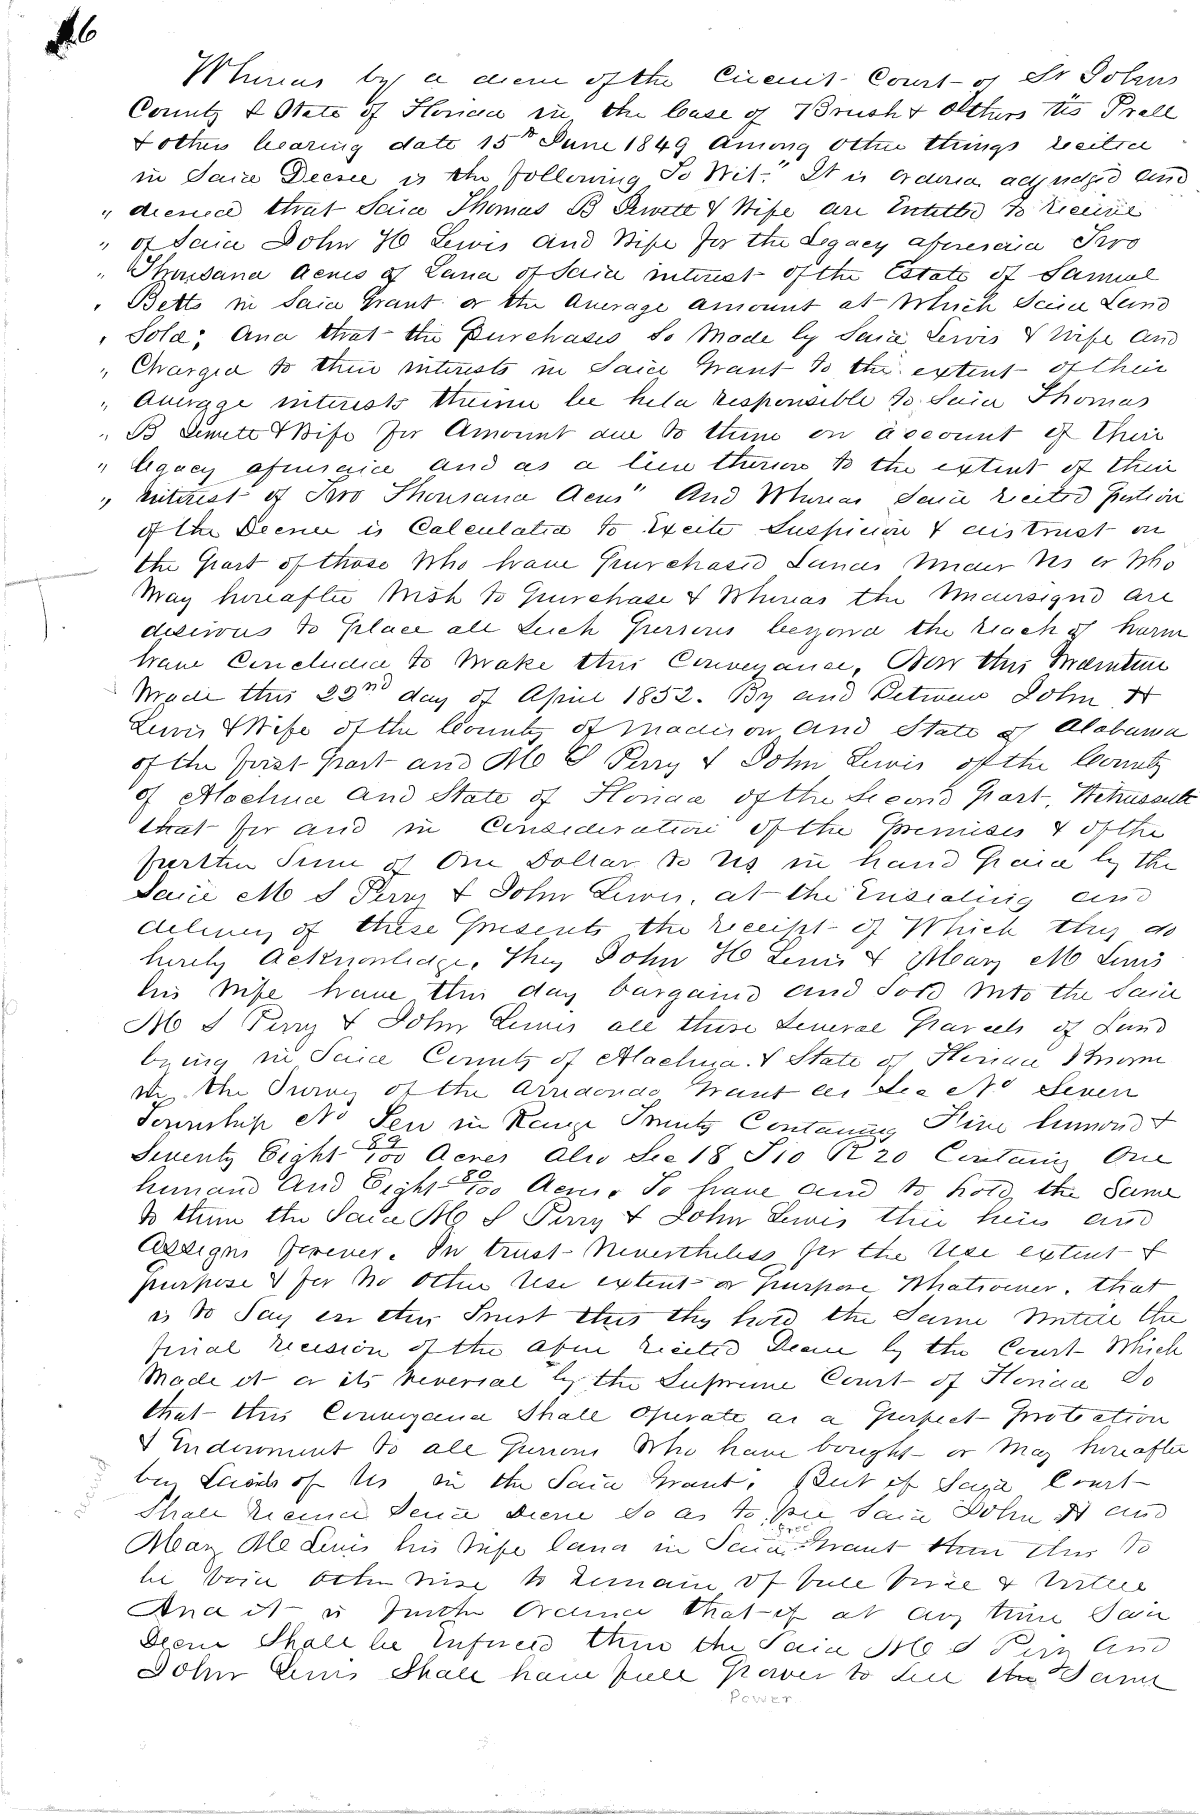 6
Whereas by a decree of the Circuit Court of St Johns
County & State of Florida in the Case of Brush & Others vs Prall
& others bearing date 15th June 1849 among other things recited
in Said Decree is the following To Wit: "It is ordered adjudged and
" decreed that Said Thomas B Jewett & Wife are Entitled to receive
" of Said John H Lewis and Wife for the Legacy aforesaid Two
" Thousand acres of Land of Said interest of the Estate of Samuel
" Betts in Said Grant or the average amount at Which Said Land
" Sold; And that the purchases So Made by Said Lewis & Wife and
" Charged to their interests in Said Grant to the extent of their
" average interests therein be held responsible to Said Thomas
" B Jewett & Wife for Amount due to them on account of their
" legacy aforesaid and as a lien thereon to the extent of their
" interest of Two Thousand Acres" And Whereas Said recited portion
of the Decree is Calculated to Excite Suspicion & distrust on
the part of those Who have purchased Lands Under Us or Who
May hereafter Wish to purchase & Whereas the Undersigned are
desirous to place all Such persons beyond the reach of harm
have Concluded to Make this Conveyance, Now this Indenture
Made this 22nd day of April 1852. By and Between John H
Lewis & Wife of the County of Madison and State of Alabama
of the first part and M S Perry & John Lewis of the County
of Alachua and State of Florida of the Second part, Witnesseth
that for and in Consideration of the premises & of the
further Sum of One Dollar to Us in hand paid by the
Said M S Perry & John Lewis, at the Ensealing and
delivery of these presents the receipt of Which they do
hereby Acknowledge, they John H Lewis & Mary M Lewis
his Wife have this day bargained and Sold Unto the Said
M S Perry & John Lewis all those Several parcels of Land
lying in Said County of Alachua & State of Florida Known
in the Survey of the Arredondo Grant as Sec No Seven
Township No Ten in Range Twenty Containing Five hundred &
Seventy Eight 89/100 Acres Also Sec 18 T10 R20 Containing One
hundred And Eight 80/100 Acres. To have and to hold the Same
to them the Said M S Perry & John Lewis their heirs and
Assigns forever. In trust Nevertheless for the Use extent &
purpose & for No other Use extent or purpose Whatsoever, that
is to Say in this Trust that they hold the Same Until the
final decision of the afore recited Decree by the Court Which
Made it or its reversal by the Supreme Court of Florida So
that this Conveyance Shall Operate as a perfect protection
& Endowment to all persons Who have bought or May hereafter
buy Lands of Us in the Said Grant. But if Said Court
Shall Said Decree So as to free Said John H and
free
Mary M Lewis his Wife land in Said Grant then this to
be Void otherwise to remain of full force & Virtue
And it is further that if at any time Said
Decree Shall be Enforced then the Said M S Perry and
John Lewis Shall have full Power to Sell the Same
Power